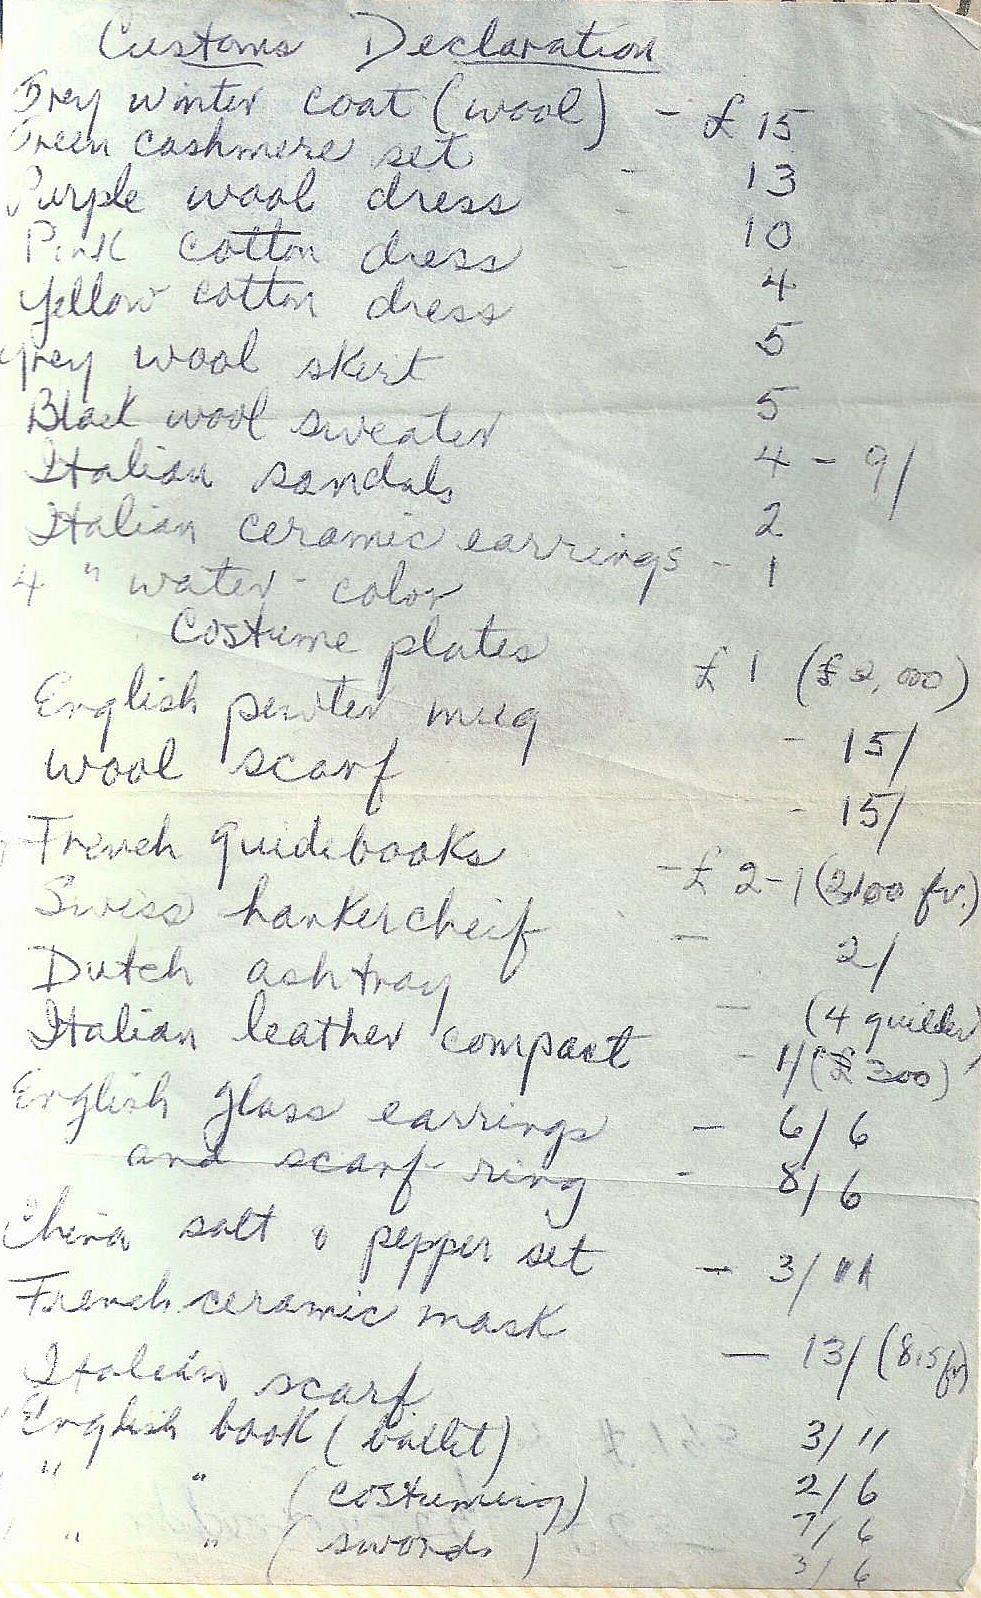 Customs Declaration
Grey winter coat (wool) - £15
Green cashmere set - 13
Purple wool dress - 10
Pink cotton dress - 4
Yellow cotton dress 5
Grey wool skirt 5
Black wool sweater 4 - 9/
Italian sandals 2
Italian ceramic earrings - 1
4 " water-color
Costume plates £1 (£2,000)
English pewter mug - 15/
wool scarf - 15/
French guidebooks - £2-1 (2,100 fr.)
Swiss hankercheif - 2/
Dutch ashtray - (4 guilder)
Italian leather compact - (£300)
English glass earrings - 6/6
and scarf ring - 8/6
China salt & pepper set - 3/11
French ceramic mask - 13/ (815 fr)
Italian scarf 3/11
English book (ballet) 2/6
" " (costuming) 7/6
" " (swords) 3/6